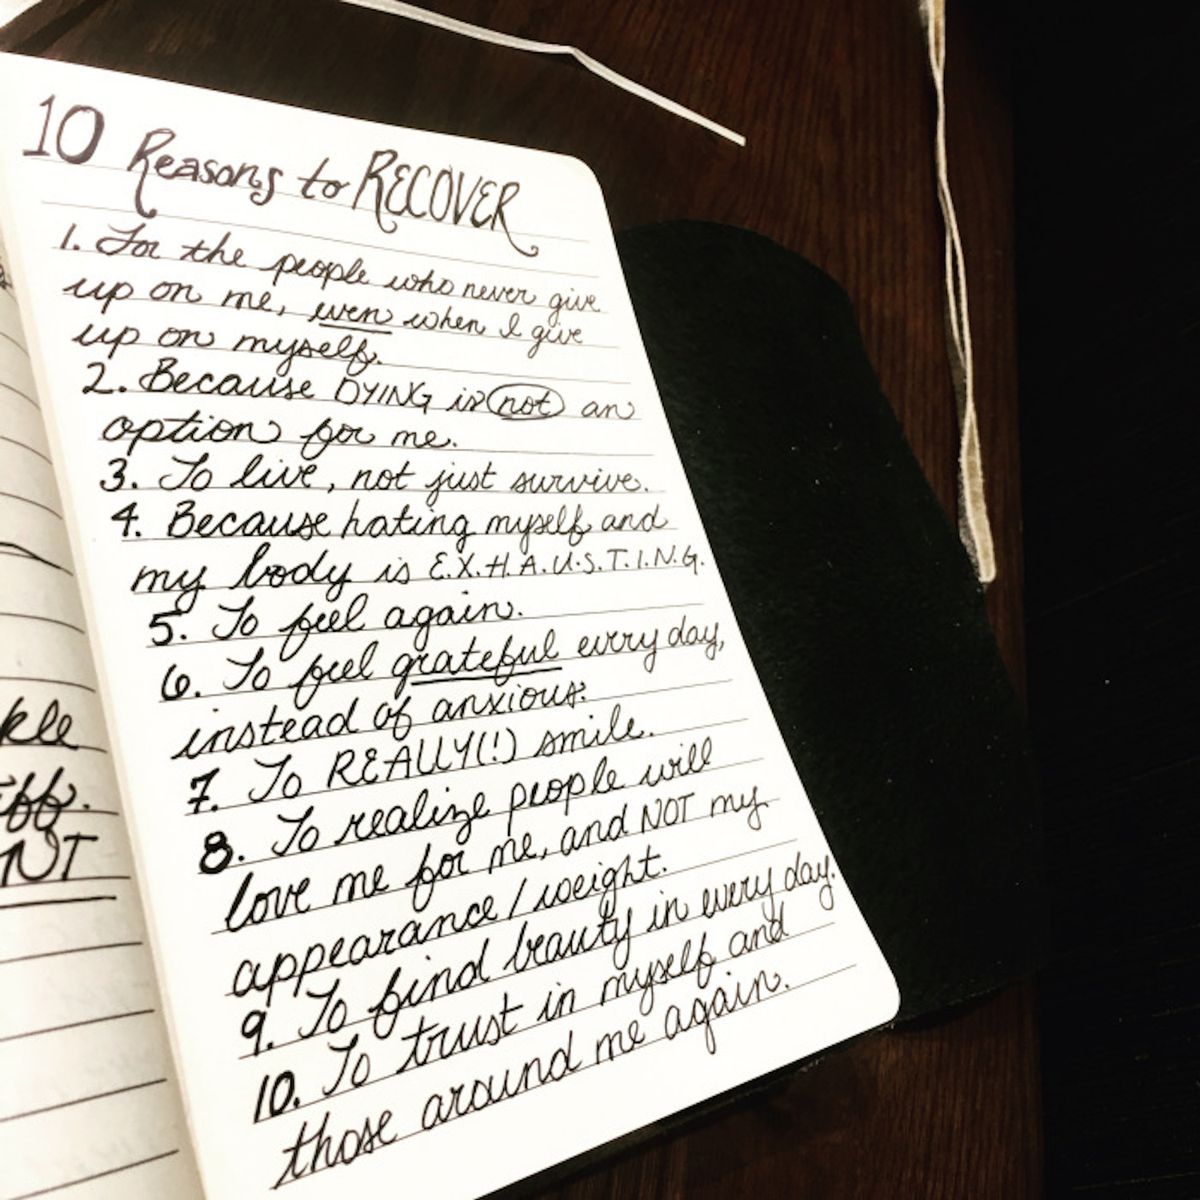 kle
NT
10 Reasons to RECOVER
1. For the people who never give
up on me, even when I give
up on myself.
2. Because DYING is not an
option for me.
3. To live, not just survive.
4. Because hating myself and
my body is E.X.H.A.U.S.T.I.N.G.
5. To feel again.
6. To feel grateful every day,
instead of anxious.
7. To REALLY(!) smile.
8. To realize people will
love me for me, and NOT my
appearance/weight.
9. To find beauty in every day.
10. To trust in myself and
those around me again.